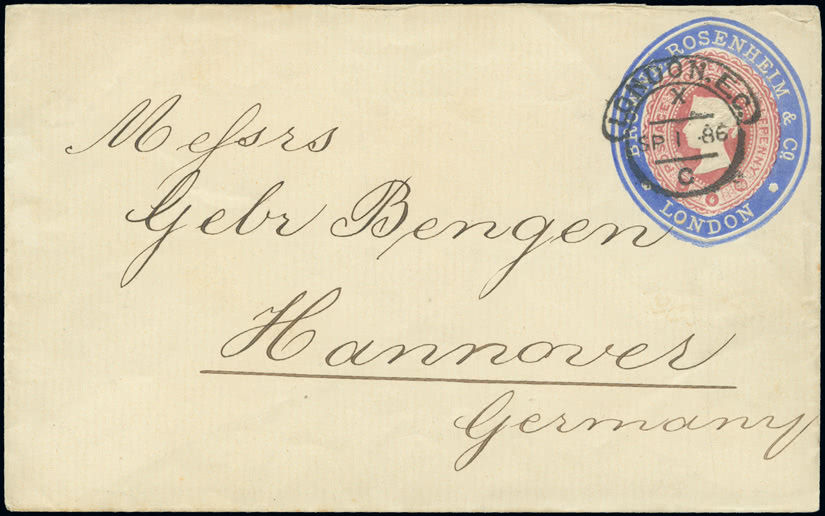 ROSENHEIM & Cọ
LONDON
LONDON. E.C.
X
SP 1 86
C
POSTAGE
PENNY
Messrs
Gebr Bengen
Hannover
Germany